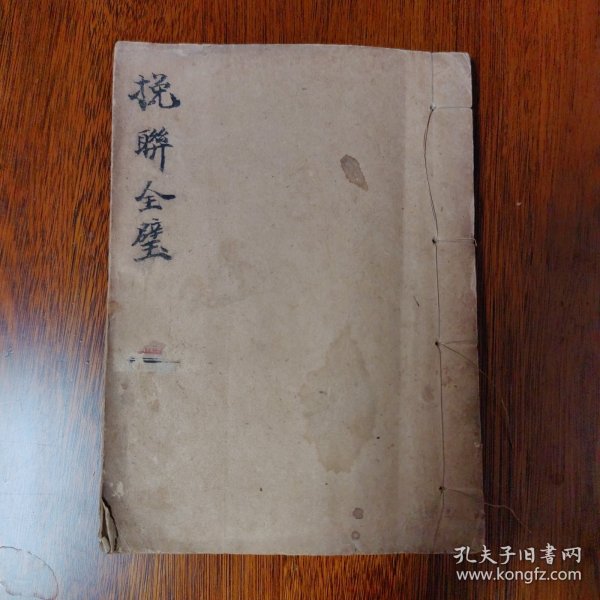 挽聯全璧
孔夫子旧書网
www.kongfz.com